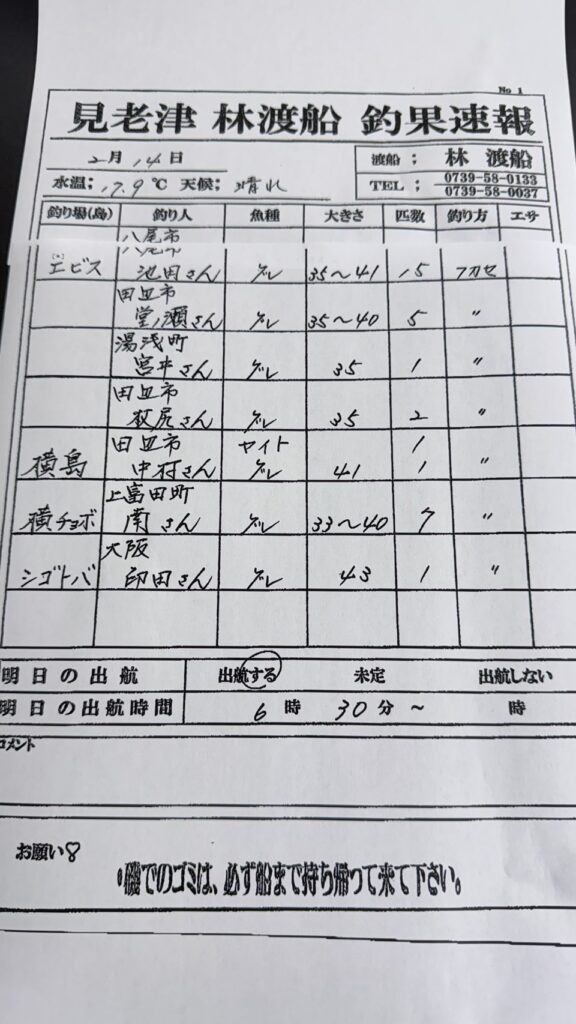 No 1
見老津 林渡船 釣果速報
2月 14日
水温; 17.9℃ 天候; 晴れ
渡船; 林 渡船
TEL; 0739-58-0133
0739-58-0037
釣り場(島) 釣り人 魚種 大きさ 匹数 釣り方 エサ
八尾市
エビス 池田さん グレ 35～41 15 フカセ
田辺市
堂ノ瀬さん グレ 35～40 5 〃
湯浅町
宮井さん グレ 35 1 〃
田辺市
さん グレ 35 2 〃
田辺市 セイト 1
横島 中村さん グレ 41 1 〃
上富田町
横チョボ 南さん グレ 33～40 7 〃
大阪
シゴトバ 印田さん グレ 43 1 〃
明日の出航 出航する 未定 出航しない
明日の出航時間 6時 30分～ 時
コメント
お願い♡
・磯でのゴミは、必ず船まで持ち帰って来て下さい。